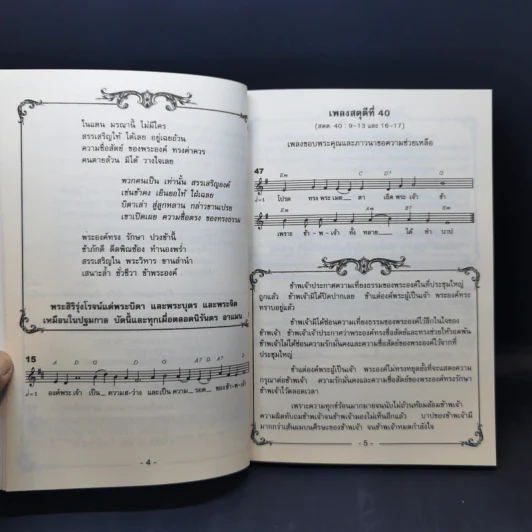 ในแดน มรณานี้ ไม่มีใคร
สรรเสริญไท้ ได้เลย อยู่เฉยถ้วน
ความชื่อสัตย์ ของพระองค์ ทรงค่าควร
คนตายล้วน มิได้ วางใจเลย
พวกคนเป็น เท่านั้น สรรเสริญองค์
เช่นข้าคง เยินยอไท้ ใฝ่เฉลย
บิดาเล่า สู่ลูกหลาน กล่าวขานเปรย
เขาเปิดเผย ความซื่อตรง ของทรงธรรม
พระองค์ทรง รักษา ปวงข้านี้
ข้าภักดี ดีดพิณซ้อง ทำนองพร่ำ
สรรเสริญใน พระวิหาร ขานลำนำ
เสนาะล้ำ ชั่วชีวา ข้าพระองค์
พระสิริรุ่งโรจน์แด่พระบิดา และพระบุตร และพระจิต
เหมือนในปฐมกาล บัดนี้และทุกเมื่อตลอดนิรันดร อาแมน
15
A D G D G A7 D A7 D
องค์พระเจ้า เป็น ความสว่าง และเป็น ความ รอด ของข้าพเจ้า
- 4 -
เพลงสดุดีที่ 40
(สดด. 40 : 9-13 และ 16-17)
เพลงขอบพระคุณและภาวนาขอความช่วยเหลือ
47
Em C D7 G
โปรด ทรงพระเมตตา เถิดพระเจ้า ข้า
Em Am B7 Em
เพราะ ข้าพเจ้า ทั้ง หลาย ได้ ทำ บาป
ข้าพเจ้าประกาศความเที่ยงธรรมของพระองค์ในที่ประชุมใหญ่
ถูกแล้ว ข้าพเจ้ามิได้ปิดปากเลย ข้าแต่องค์พระผู้เป็นเจ้า พระองค์ทรง
ทราบอยู่แล้ว
ข้าพเจ้ามิได้ซ่อนความเที่ยงธรรมของพระองค์ไว้ลึกในใจของ
ข้าพเจ้า ข้าพเจ้าประกาศว่าพระองค์ทรงซื่อสัตย์และทรงช่วยให้รอดพ้น
ข้าพเจ้าไม่ได้ซ่อนความรักมั่นคงและความซื่อสัตย์ของพระองค์ไว้จากที่
ประชุมใหญ่
ข้าแต่องค์พระผู้เป็นเจ้า พระองค์ไม่ทรงหยุดยั้งที่จะแสดงความ
กรุณาต่อข้าพเจ้า ความรักมั่นคงและความซื่อสัตย์ของพระองค์จะทรงรักษา
ข้าพเจ้าไว้ตลอดเวลา
เพราะความทุกข์ร้อนมากมายจนนับไม่ถ้วนห้อมล้อมข้าพเจ้า
ความผิดทับถมข้าพเจ้าจนข้าพเจ้ามองไม่เห็นอีกแล้ว บาปของข้าพเจ้ามี
มากกว่าเส้นผมบนศีรษะของข้าพเจ้า จนข้าพเจ้าหมดกำลังใจ
- 5 -